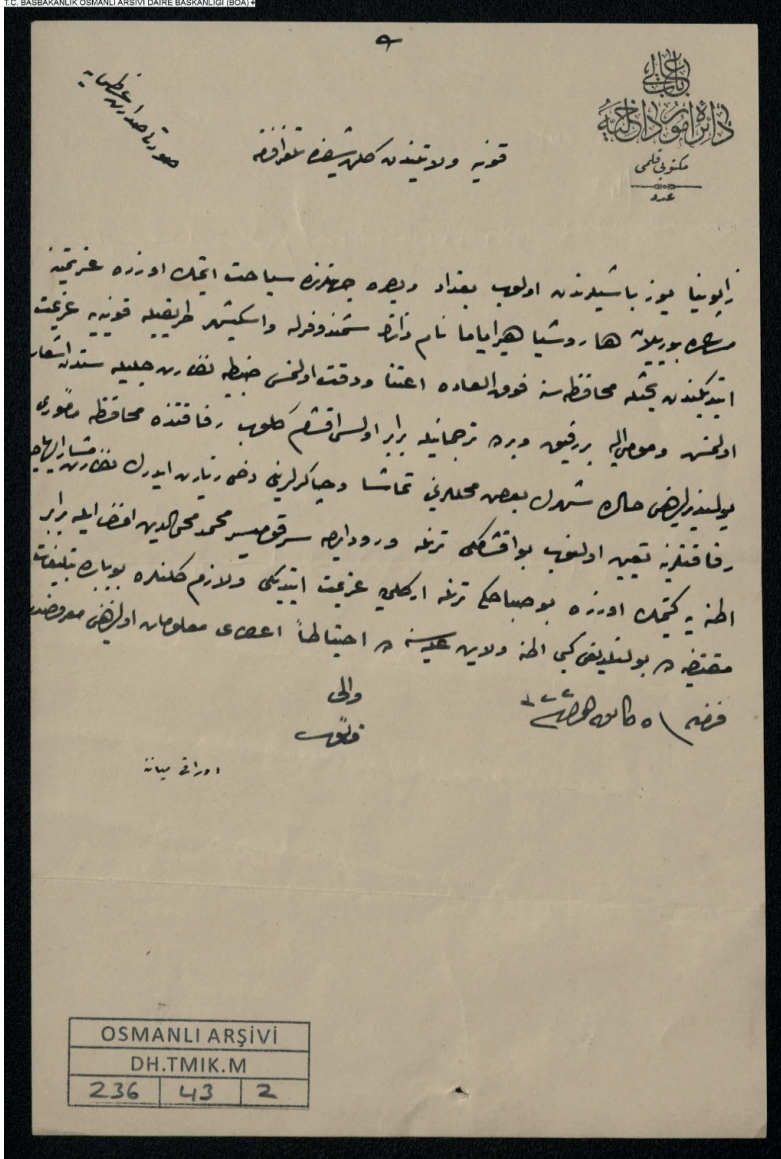 T.C. BAŞBAKANLIK OSMANLI ARŞİVİ DAİRE BAŞKANLIĞI (BOA)
باب عالی
دائرهٔ امور داخلیه
مکتوبی قلمی
عدد
قونیه ولایتندن کلن شفره تلغرافنامه
ژاپونیا یوزباشیلرندن اولوب بغداد وبصره جهتلرنده سیاحت ایتمك اوزره عزیمتنه
نام ذات شمندوفرله واسکیشهر طریقیله قونیه‌یه عزیمت
ایتدیکندن بحثله محافظه‌سنه فوق العاده اعتنا ودقت اولنمسی ضبطیه نظارت جلیله‌سندن اشعار
اولنمش ومومی الیه بر رفیق وبر ترجمانیله برابر اولسی اقشام کلوب رفاقتنده محافظه مأموری
شهرك بعض محللرینی تماشا دخی زیارت ایدرك نظارت مشار الیهاجه
رفاقتلرینه تعیین اولنوب بو اقشامکی ترنله ورود ایدن سرقومیسر محمد محی الدین افندی ایله برابر
اطنه‌یه کیتمك اوزره بو صباحکی ترنله ارکلی‌یه عزیمت ایتدیکی ولازم کلنلره بو بابده تبلیغات
مقتضیه ده بولنلدیغی کبی اطنه ولایت علیه‌سنه ده احتیاطاً اعطای معلومات اولندیغی معروضدر
والی
فائق
OSMANLI ARŞİVİ
DH.TMIK.M
236 43 2